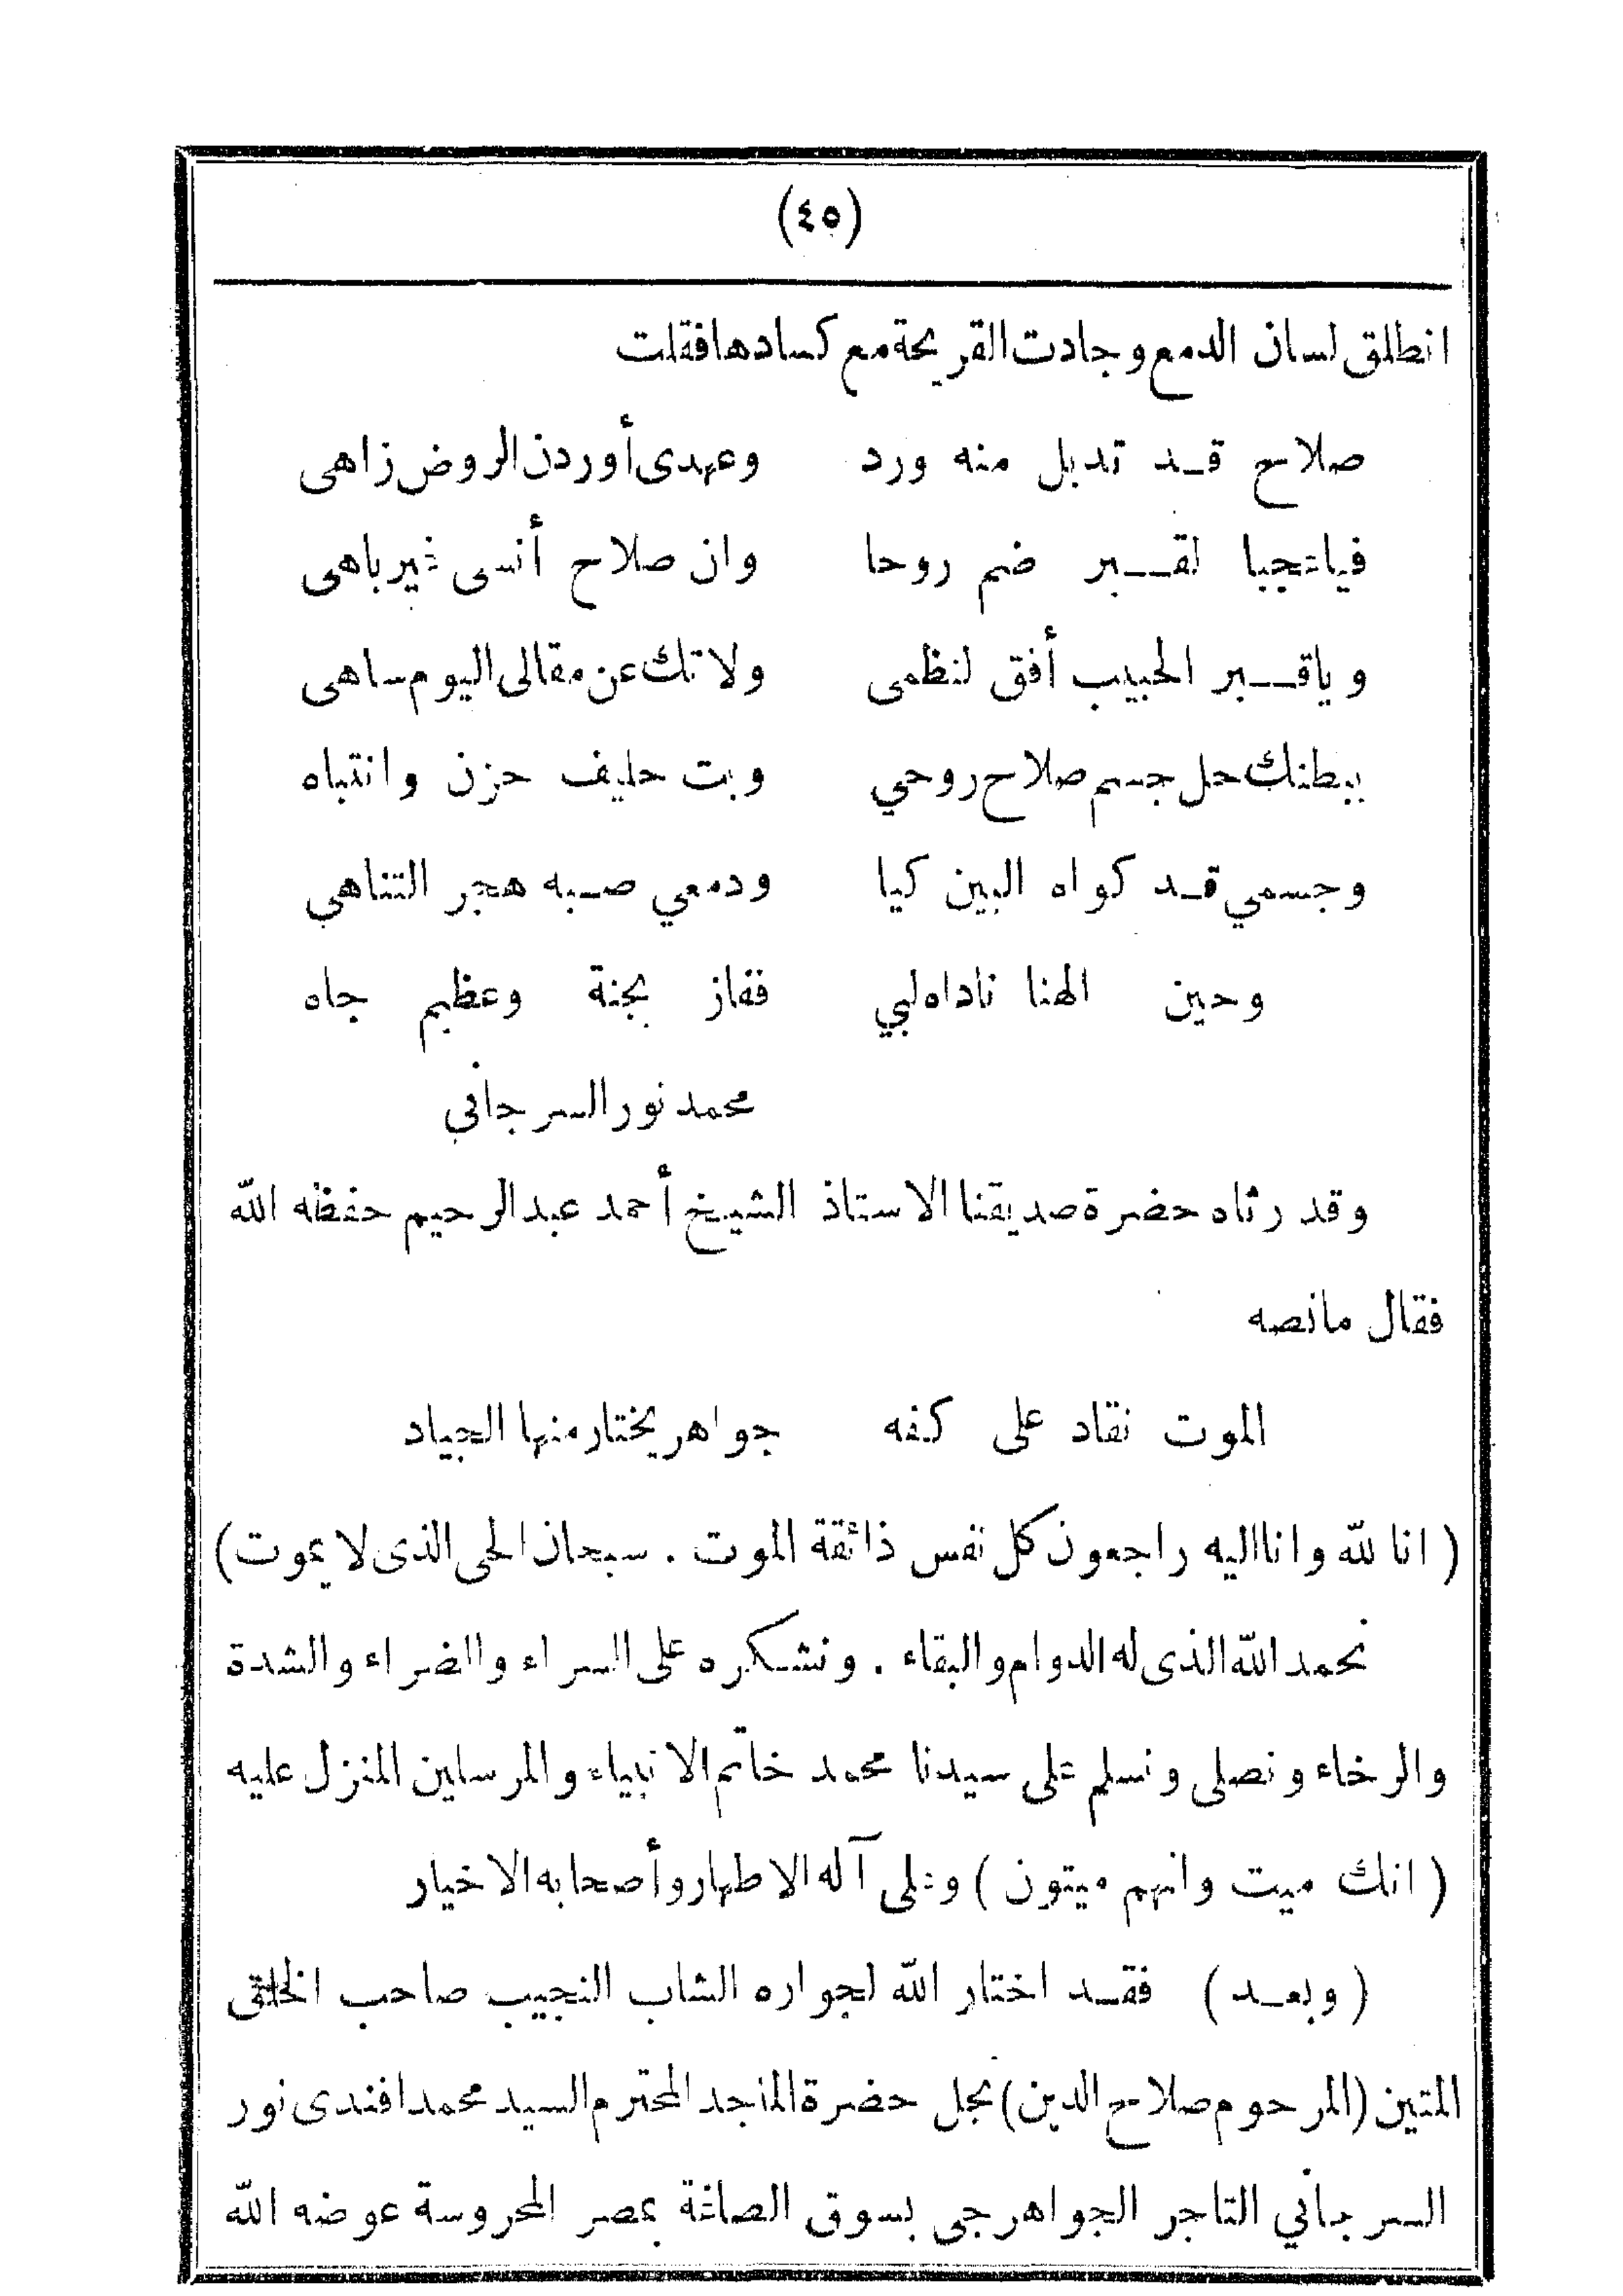 (٤٥)
انطلق لسان الدمع وجادت القريحة مع كسادها فقلت
صلاح قد تدبل منه ورد وعهدى أوردن الروض زاهى
فياعجبا لقبر ضم روحا وان صلاح أنسى غير باهى
وياقبر الحبيب أفق لنظمى ولا تك عن مقالى اليوم ساهى
ببطنك حل جسم صلاح روحي وبت حليف حزن وانتباه
وجسمي قد كواه البين كيا ودمعي صبه هجر التناهى
وحين الهنا ناداه لبي ففاز بجنة وعظيم جاه
محمد نور السرجاني
وقد رثاه حضرة صديقنا الاستاذ الشيخ أحمد عبد الرحيم حفظه الله
فقال مانصه
الموت نقاد على كفه جواهر يختار منها الجياد
( انا لله وانا اليه راجعون كل نفس ذائقة الموت . سبحان الحى الذى لا يموت )
نحمد الله الذى له الدوام والبقاء . ونشكره على السراء والضراء والشدة
والرخاء ونصلى ونسلم على سيدنا محمد خاتم الانبياء والمرسلين المنزل عليه
( انك ميت وانهم ميتون ) وعلى آله الاطهار وأصحابه الاخيار
( وبعد ) فقد اختار الله لجواره الشاب النجيب صاحب الخلق
المتين (المرحوم صلاح الدين) نجل حضرة الماجد المحترم السيد محمد افندى نور
السرجاني التاجر الجواهرجى بسوق الصاغة بمصر المحروسة عوضه الله